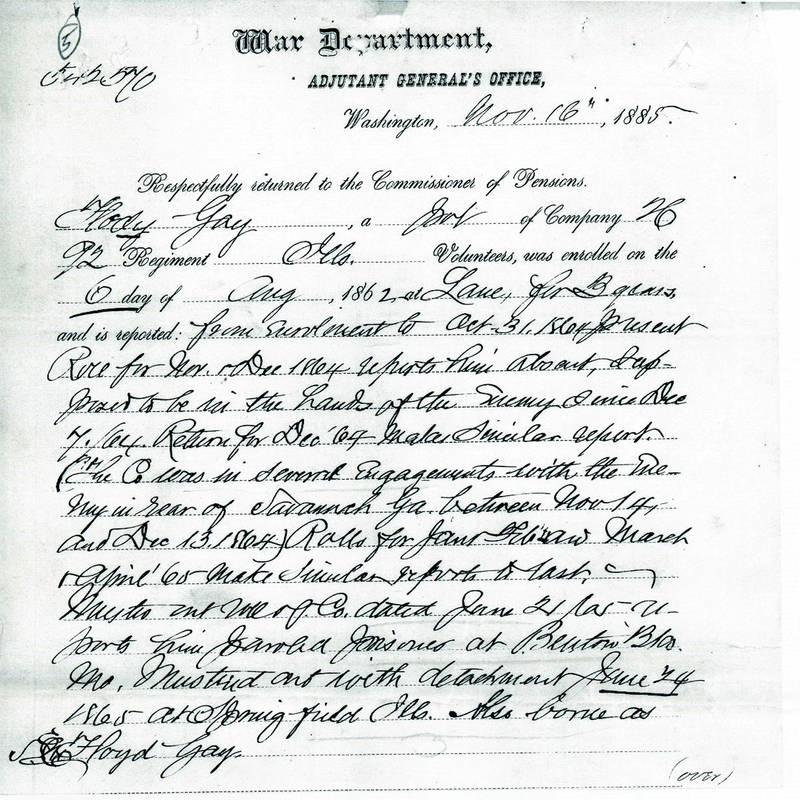 5
War Department,
ADJUTANT GENERAL'S OFFICE,
Washington, Nov. 16", 1885.
Respectfully returned to the Commissioner of Pensions.
Flody Gay, a Pvt of Company H
92 Regiment Ills. Volunteers, was enrolled on the
6 day of Aug, 1862, at Lane, for 3 years,
and is reported: from Enrolment to Oct 31. 1864 Present
Roll for Nov. & Dec 1864 reports him absent, Sup-
posed to be in the hands of the Enemy Since Dec
7. /64. Return for Dec '64 makes Similar report.
(The Co was in several Engagements with the Ene-
my in rear of Savannah Ga. between Nov 14,
and Dec 13. 1864) Rolls for Jany Feb'y and March
& April '65 make similar reports to last.
Muster out roll of Co. dated June 21 /65 re-
ports him paroled prisoner at Benton Bks.
Mo. Mustered out with detachment June 24
1865 at Springfield Ills. Also borne as
Floyd Gay.
(over)